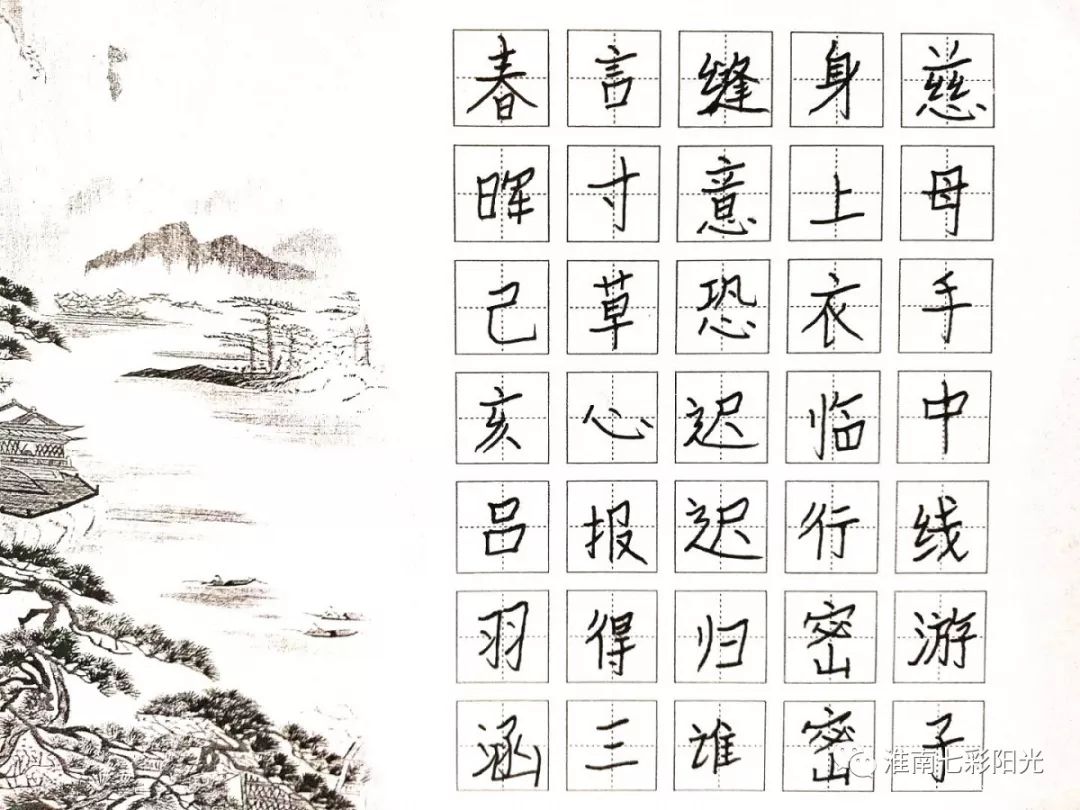 慈母手中线游子
身上衣临行密密
缝意恐迟迟归谁
言寸草心报得三
春晖己亥吕羽涵
淮南七彩阳光